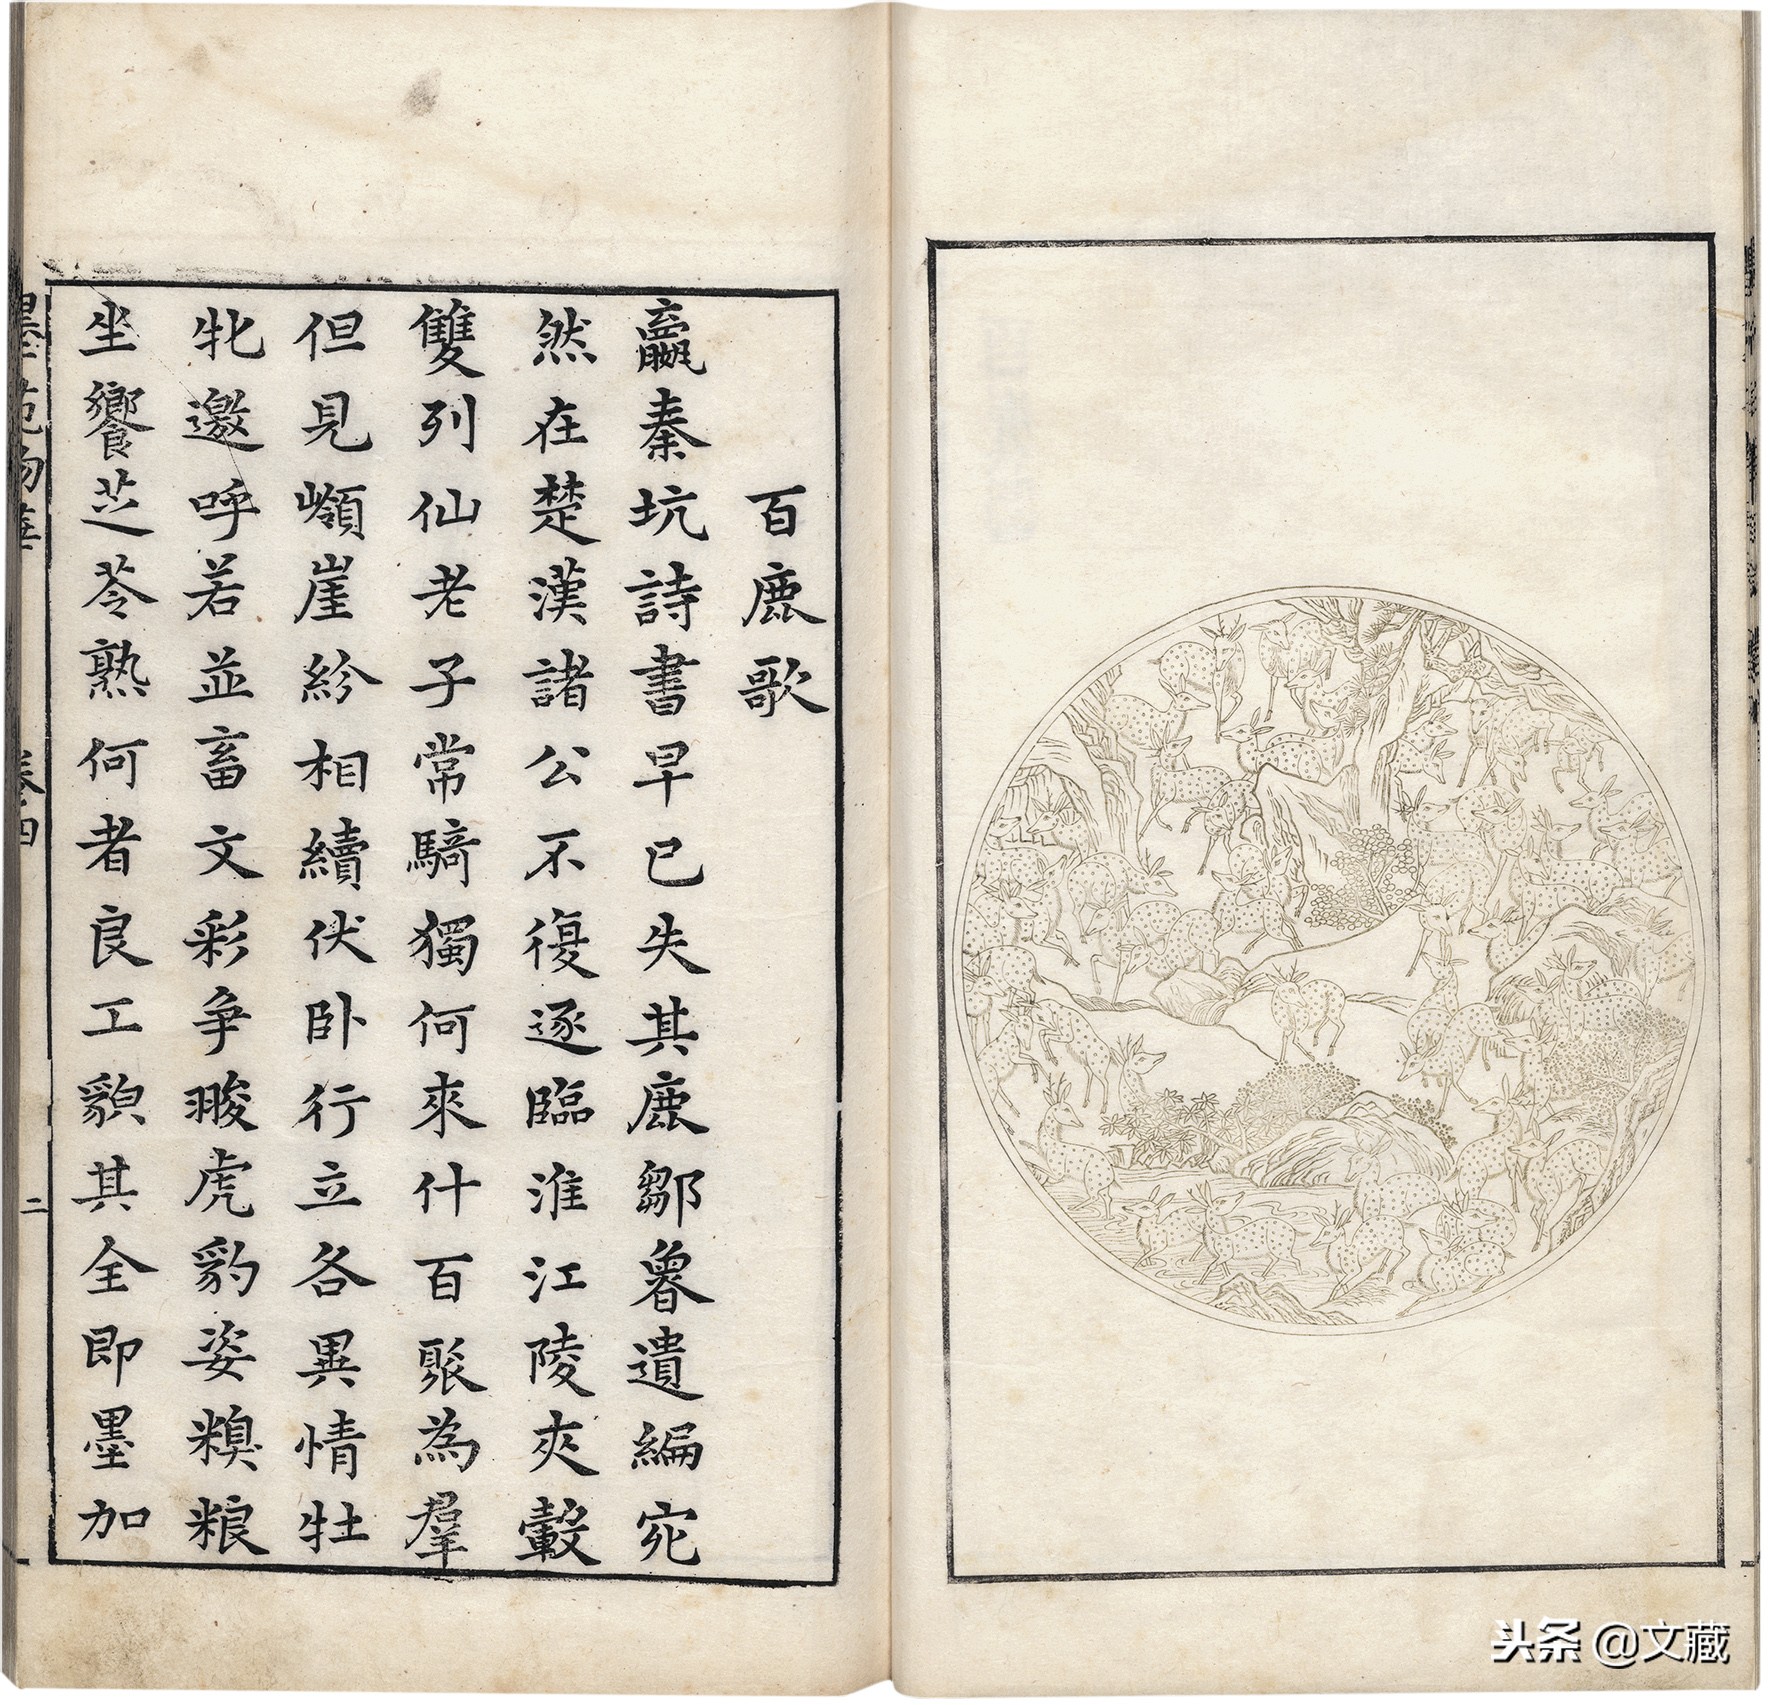 百鹿歌
嬴秦坑詩書早已失其鹿鄒魯遺編宛
然在楚漢諸公不復逐臨淮江陵夾轂
雙列仙老子常騎獨何來什百聚為羣
但見巔崖紛相續伏臥行立各異情牡
牝邀呼若並畜文彩爭朘虎豹姿糗粮
坐饗芝苓熟何者良工貌其全即墨加
墨苑 物華
卷四
二
头条 @文藏